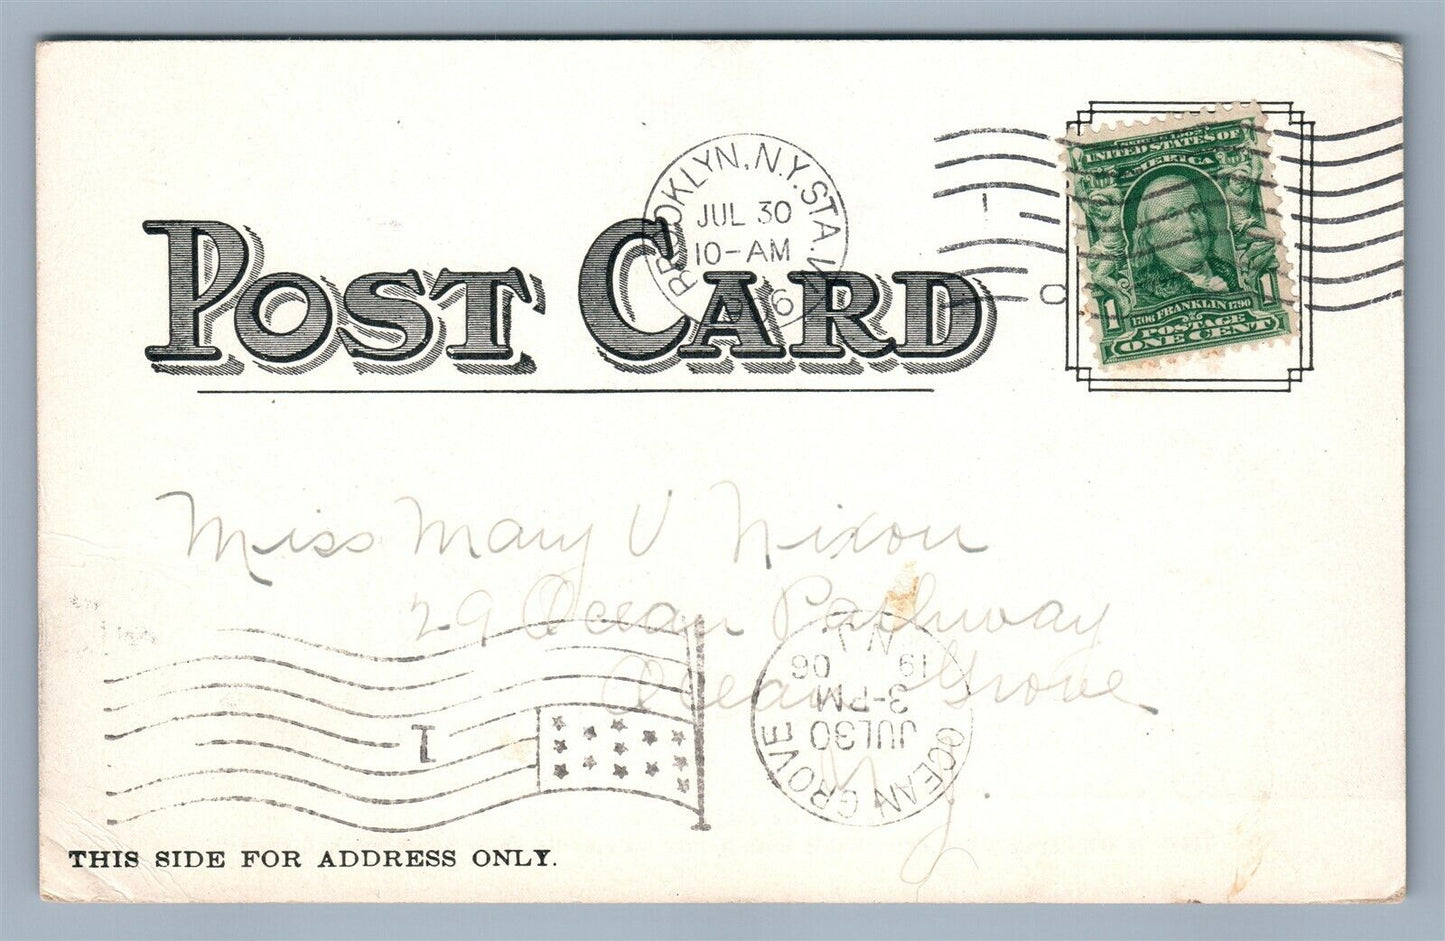 POST CARD
BROOKLYN, N.Y. STA. W.
JUL 30
10-AM
06
1
SERIES 1902
UNITED STATES OF
AMERICA
1706 FRANKLIN 1790
1 1
POSTAGE
ONE CENT
Miss Mary V Nixon
29 Ocean Pathway
Ocean Grove
N J.
OCEAN GROVE
JUL 30
3-PM
19 06
N.J.
1
THIS SIDE FOR ADDRESS ONLY.